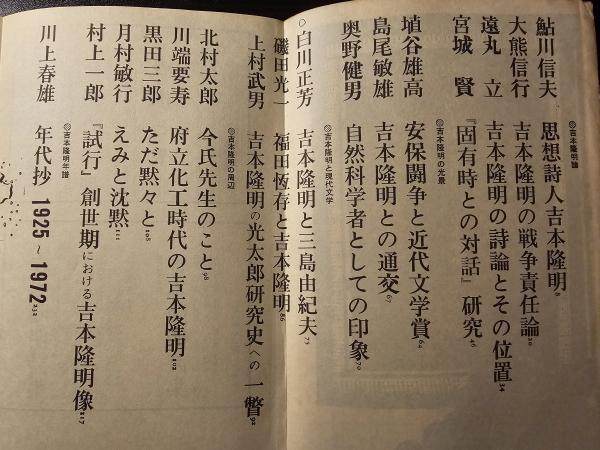 ◎吉本隆明論
鮎川信夫 思想詩人吉本隆明8
大熊信行 吉本隆明の戦争責任論20
遠丸 立 吉本隆明の詩論とその位置34
宮城 賢 『固有時との対話』研究46
◎吉本隆明の光景
埴谷雄高 安保闘争と近代文学賞64
島尾敏雄 吉本隆明との通交67
奥野健男 自然科学者としての印象70
◎吉本隆明と現代文学
○白川正芳 吉本隆明と三島由紀夫73
磯田光一 福田恆存と吉本隆明86
上村武男 吉本隆明の光太郎研究史への一瞥92
◎吉本隆明の周辺
北村太郎 今氏先生のこと98
川端要寿 府立化工時代の吉本隆明102
黒田三郎 ただ黙々と108
月村敏行 えみと沈黙…
村上一郎 『試行』創世期における吉本隆明像217
◎吉本隆明年譜
川上春雄 年代抄 1925~1972 232